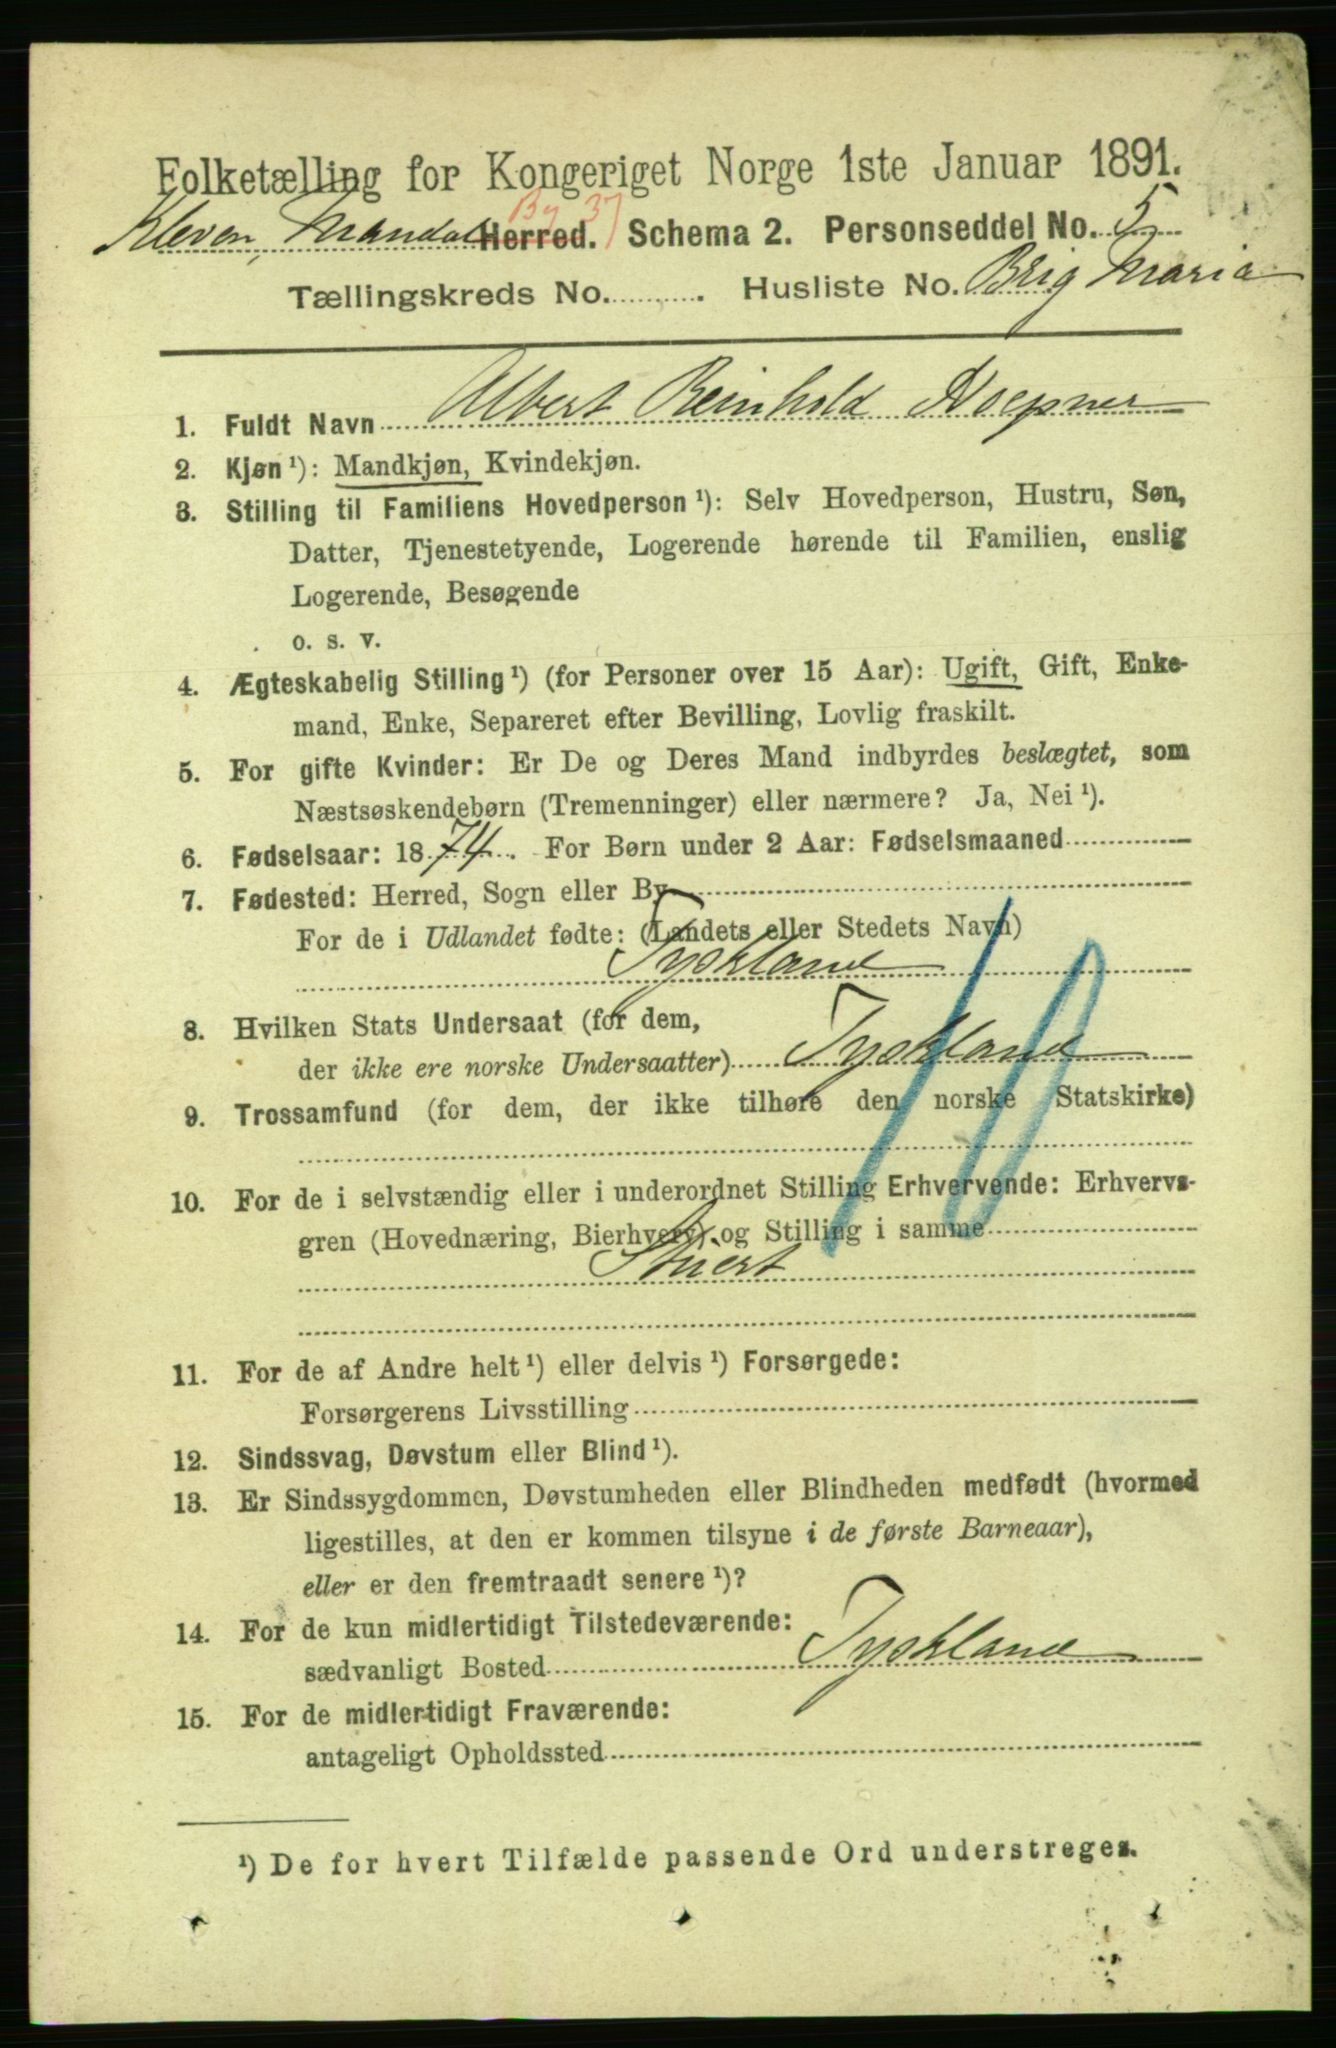 Folketælling for Kongeriget Norge 1ste Januar 1891.
Kleven, Mandal Herred. By 37 Schema 2. Personseddel No. 5
Tællingskreds No. . Husliste No. Brig Maria
1. Fuldt Navn Albert Reinhold Koepner
2. Kjøn ¹): Mandkjøn, Kvindekjøn.
3. Stilling til Familiens Hovedperson ¹): Selv Hovedperson, Hustru, Søn,
Datter, Tjenestetyende, Logerende hørende til Familien, enslig
Logerende, Besøgende
o. s. v.
4. Ægteskabelig Stilling ¹) (for Personer over 15 Aar): Ugift, Gift, Enke-
mand, Enke, Separeret efter Bevilling, Lovlig fraskilt.
5. For gifte Kvinder: Er De og Deres Mand indbyrdes beslægtet, som
Næstsøskendebørn (Tremenninger) eller nærmere? Ja, Nei ¹).
6. Fødselsaar: 1874. For Børn under 2 Aar: Fødselsmaaned
7. Fødested: Herred, Sogn eller By
For de i Udlandet fødte: (Landets eller Stedets Navn)
Tyskland
8. Hvilken Stats Undersaat (for dem,
der ikke ere norske Undersaatter) Tyskland
9. Trossamfund (for dem, der ikke tilhøre den norske Statskirke)
10
10. For de i selvstændig eller i underordnet Stilling Erhvervende: Erhvervs-
gren (Hovednæring, Bierhverv) og Stilling i samme
Stuert
11. For de af Andre helt ¹) eller delvis ¹) Forsørgede:
Forsørgerens Livsstilling
12. Sindssvag, Døvstum eller Blind ¹).
13. Er Sindssygdommen, Døvstumheden eller Blindheden medfødt (hvormed
ligestilles, at den er kommen tilsyne i de første Barneaar),
eller er den fremtraadt senere ¹)?
14. For de kun midlertidigt Tilstedeværende:
sædvanligt Bosted Tyskland
15. For de midlertidigt Fraværende:
antageligt Opholdssted
¹) De for hvert Tilfælde passende Ord understreges.